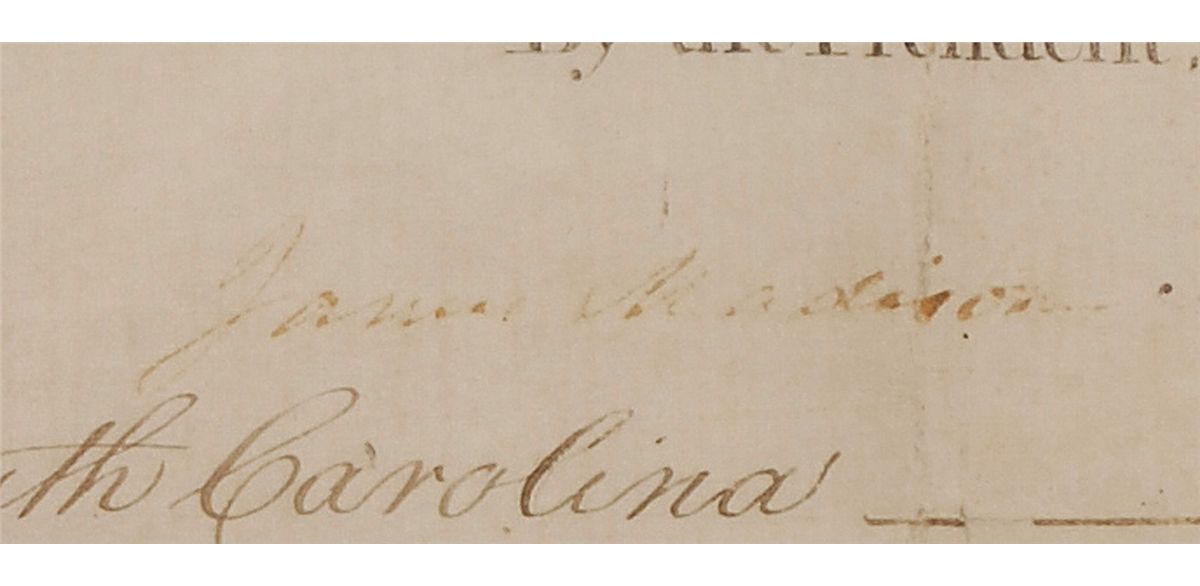 By the President,
James Madison
th Carolina